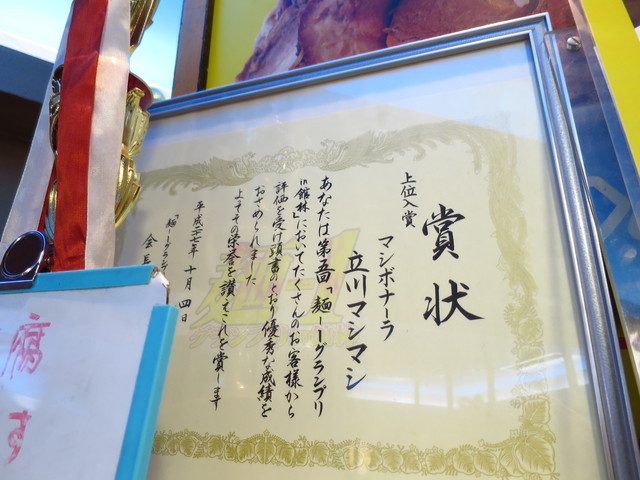 賞状
上位入賞
マシボナーラ
立川マシマシ
あなたは第五回「麺ー1グランプリ
in館林」においてたくさんのお客様から
評価を受け頭書のとおり優秀な成績を
おさめられました
よってその栄誉を讃えこれを賞します
平成二七年 十月 四日
「麺ー1グラン
会長
腐
す